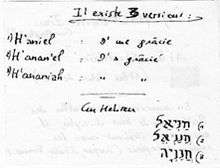 Il existe 3 versions :
1) H'aniel : D. me grâcie
2) H'anan'el : D. a gracié
3) H'ananiah : " "
En Hébreu
חניאל (1
חננאל (2
חנניה (3